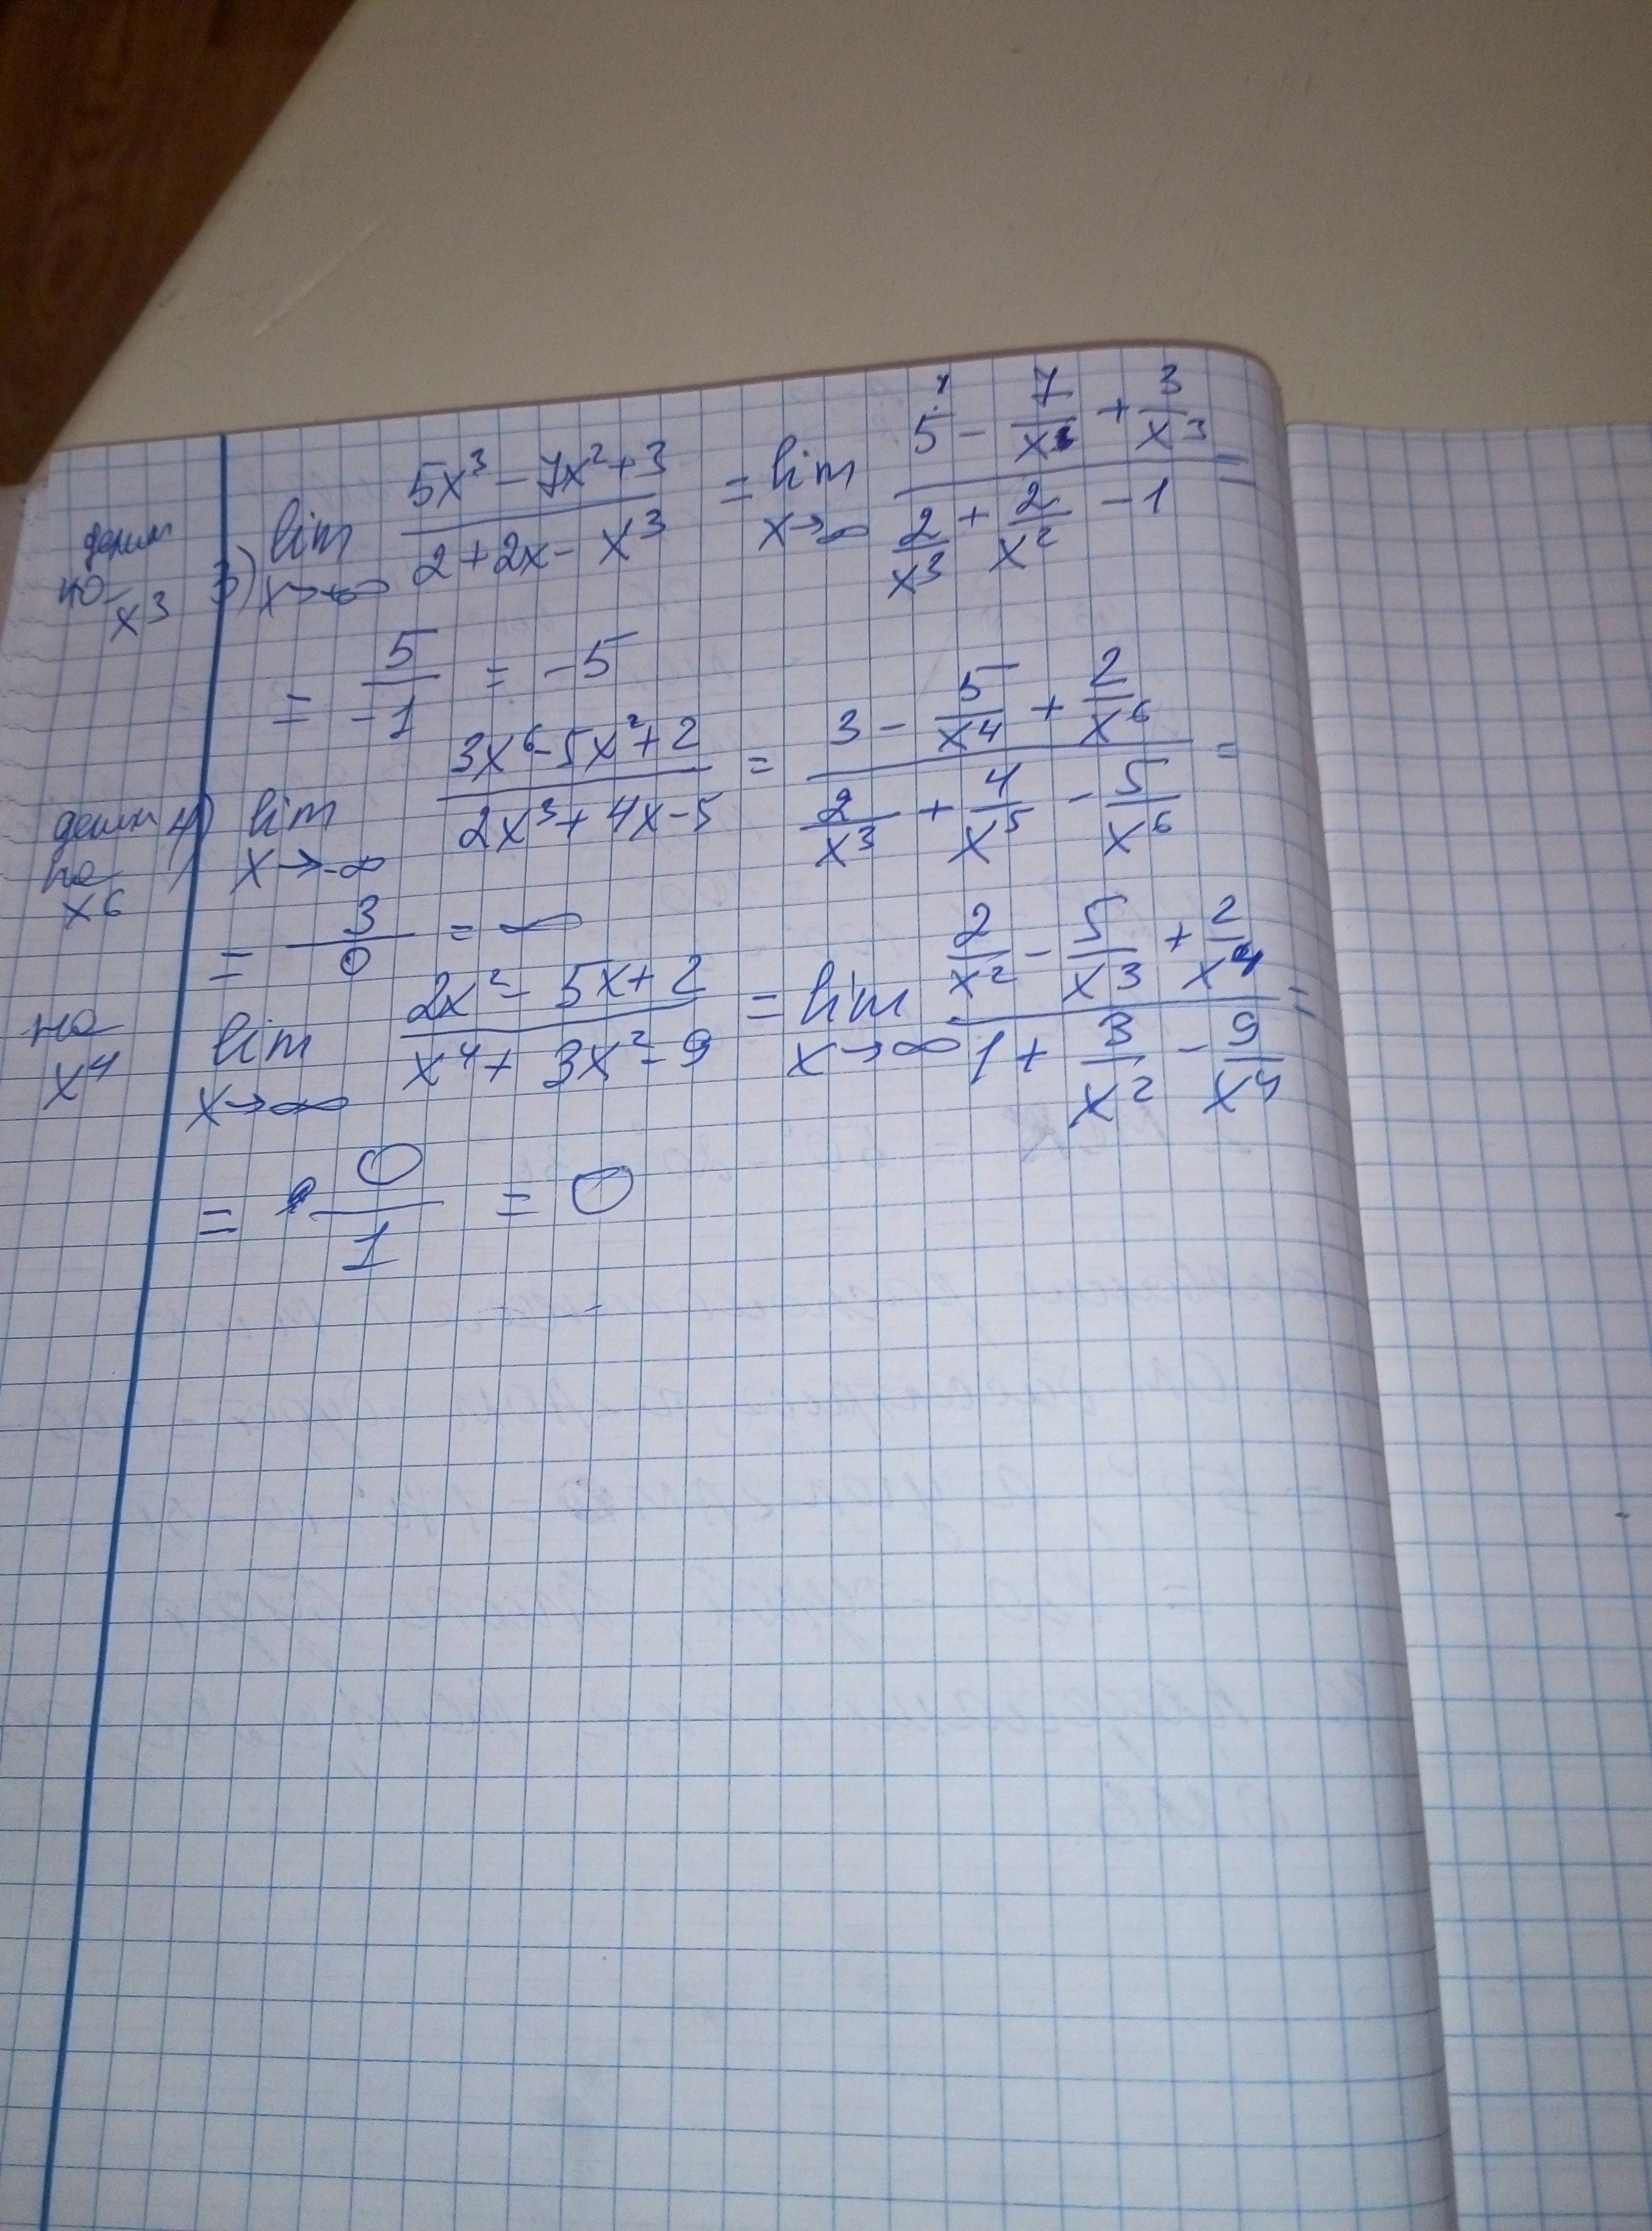 делим
на
x³
3) lim x→∞ (5x³ - 7x² + 3)/(2 + 2x - x³) = lim x→∞ (5 - 7/x + 3/x³)/(2/x³ + 2/x² - 1) =
= 5/-1 = -5
делим
на
x6
4) lim x→-∞ (3x⁶ - 5x² + 2)/(2x³ + 4x - 5) = (3 - 5/x⁴ + 2/x⁶)/(2/x³ + 4/x⁵ - 5/x⁶) =
= 3/0 = ∞
на
x⁴
lim x→∞ (2x² - 5x + 2)/(x⁴ + 3x² - 9) = lim x→∞ (2/x² - 5/x³ + 2/x⁴)/(1 + 3/x² - 9/x⁴) =
= 0/1 = 0